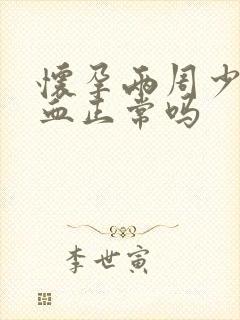 怀孕两周少
血正常吗
李世寅